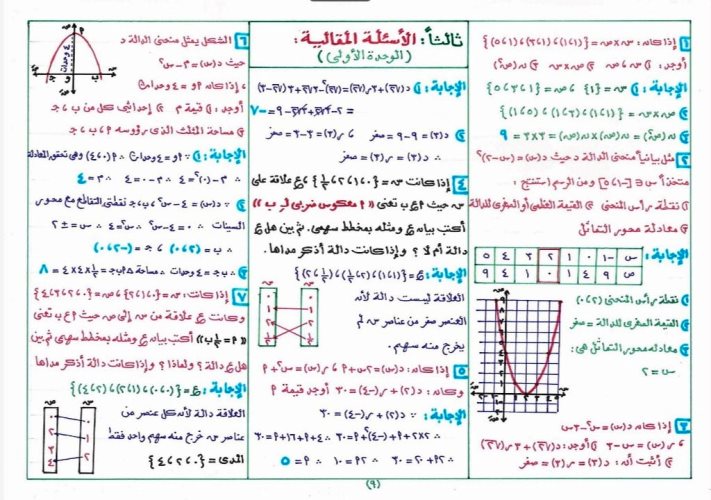 ثالثاً: الأسئلة المقالية:
(الوحدة الأولى)
١ إذا كانه: س × ص = {(١،١)،(١،٣)،(١،٥)}
أوجد: ١ س، ص ٢ ص × س ٣ ن(ص٢)
الإجابة: ١ س = {١} ، ص = {١،٣،٥}
٢ ص × س = {(١،١)،(٣،١)،(٥،١)}
٣ ن(ص٢) = ن(ص) × ن(ص) = ٣×٣ = ٩
٢ مثل بيانياً منحنى الدالة د حيث د(س) = (س-٢)٢
متخذاً س ∈ [-١،٥] ومن الرسم استنتج:
١ نقطة رأس المنحنى ٢ القيمة العظمى أو الصغرى للدالة
٣ معادلة محور التماثل
الإجابة:
س -١ ٠ ١ ٢ ٣ ٤ ٥
ص ٩ ٤ ١ ٠ ١ ٤ ٩
١ نقطة رأس المنحنى (٢،٠)
٢ القيمة الصغرى للدالة = صفر
٣ معادلة محور التماثل هى:
س = ٢
٣ إذا كانه د(س) = س٢ - ٣س
، ر(س) = س - ٣ ١ أوجد: د(√٢) + ٣ر(√٢)
٢ أثبت أنه: د(٣) = ر(٣) = صفر
الإجابة: ١ د(√٢) + ٣ر(√٢) = (√٢)٢ - ٣√٢ + ٣(√٢ - ٣)
= ٢ - ٣√٢ + ٣√٢ - ٩ = -٧
٢ د(٣) = ٩ - ٩ = صفر ، ر(٣) = ٣ - ٣ = صفر
∴ د(٣) = ر(٣) = صفر
٤ إذا كانت س = {٠،١،٢،½} ، ع علاقة على
س حيث أ ع ب تعنى (( أ معكوس ضربى لـ ب ))
أكتب بيانه ع ومثله بمخطط سهمى. ثم بين هل ع
دالة أم لا ؟ وإذا كانت دالة أذكر مداها.
الإجابة: ع = {(١،١)،(٢،½)،(½،٢)}
العلاقة ليست دالة لأنه
العنصر صفر من عناصر س لم
يخرج منه سهم.
٥ إذا كانه: د(س) = ٢س + أ ، ر(س) = س٢ + أ
وكانه: د(٢) + ر(-٤) = ٣٠ أوجد قيمة أ
الإجابة: ∵ د(٢) + ر(-٤) = ٣٠
∴ ٢×٢ + أ + (-٤)٢ + أ = ٣٠ ∴ ٤ + أ + ١٦ + أ = ٣٠
∴ ٢أ + ٢٠ = ٣٠ ∴ ٢أ = ١٠ ∴ أ = ٥
٦ الشكل يمثل منحنى الدالة د
حيث د(س) = م - س٢
، إذا كانه أو = ٤ وحدات
أوجد: ١ قيمة م ٢ إحداثيى كل من ب، ج
٣ مساحة المثلث الذى رؤوسه أ، ب، ج
الإجابة: ١ ∵ أو = ٤ وحدات ∴ أ(٠،٤) وهى تحقق المعادلة
∴ م - (٠)٢ = ٤ ∴ م - ٠ = ٤ ∴ م = ٤
٢ ∵ د(س) = ٤ - س٢ ، ب، ج نقطتى التقاطع مع محور
السينات ∴ ٤ - س٢ = ٠ ∴ س٢ = ٤ ∴ س = ±٢
∴ ب = (٢،٠) ، ج = (-٢،٠)
٣ ∴ ب ج = ٤ وحدات ∴ مساحة △ أ ب ج = ½ × ٤ × ٤ = ٨
٧ إذا كانت: س = {٠،١،٢} ، ص = {٠،٢،٣،٤}
وكانت ع علاقة من س إلى ص حيث أ ع ب تعنى
(( أ = ½ ب )) أكتب بيانه ع ومثله بمخطط سهمى ثم بين
هل ع دالة ؟ ولماذا ؟ وإذا كانت دالة أذكر مداها
الإجابة: ع = {(٠،٠)،(١،٢)،(٢،٤)}
العلاقة دالة لأنه كل عنصر من
عناصر س خرج منه سهم واحد فقط
المدى = {٠،٢،٤}
(٩)